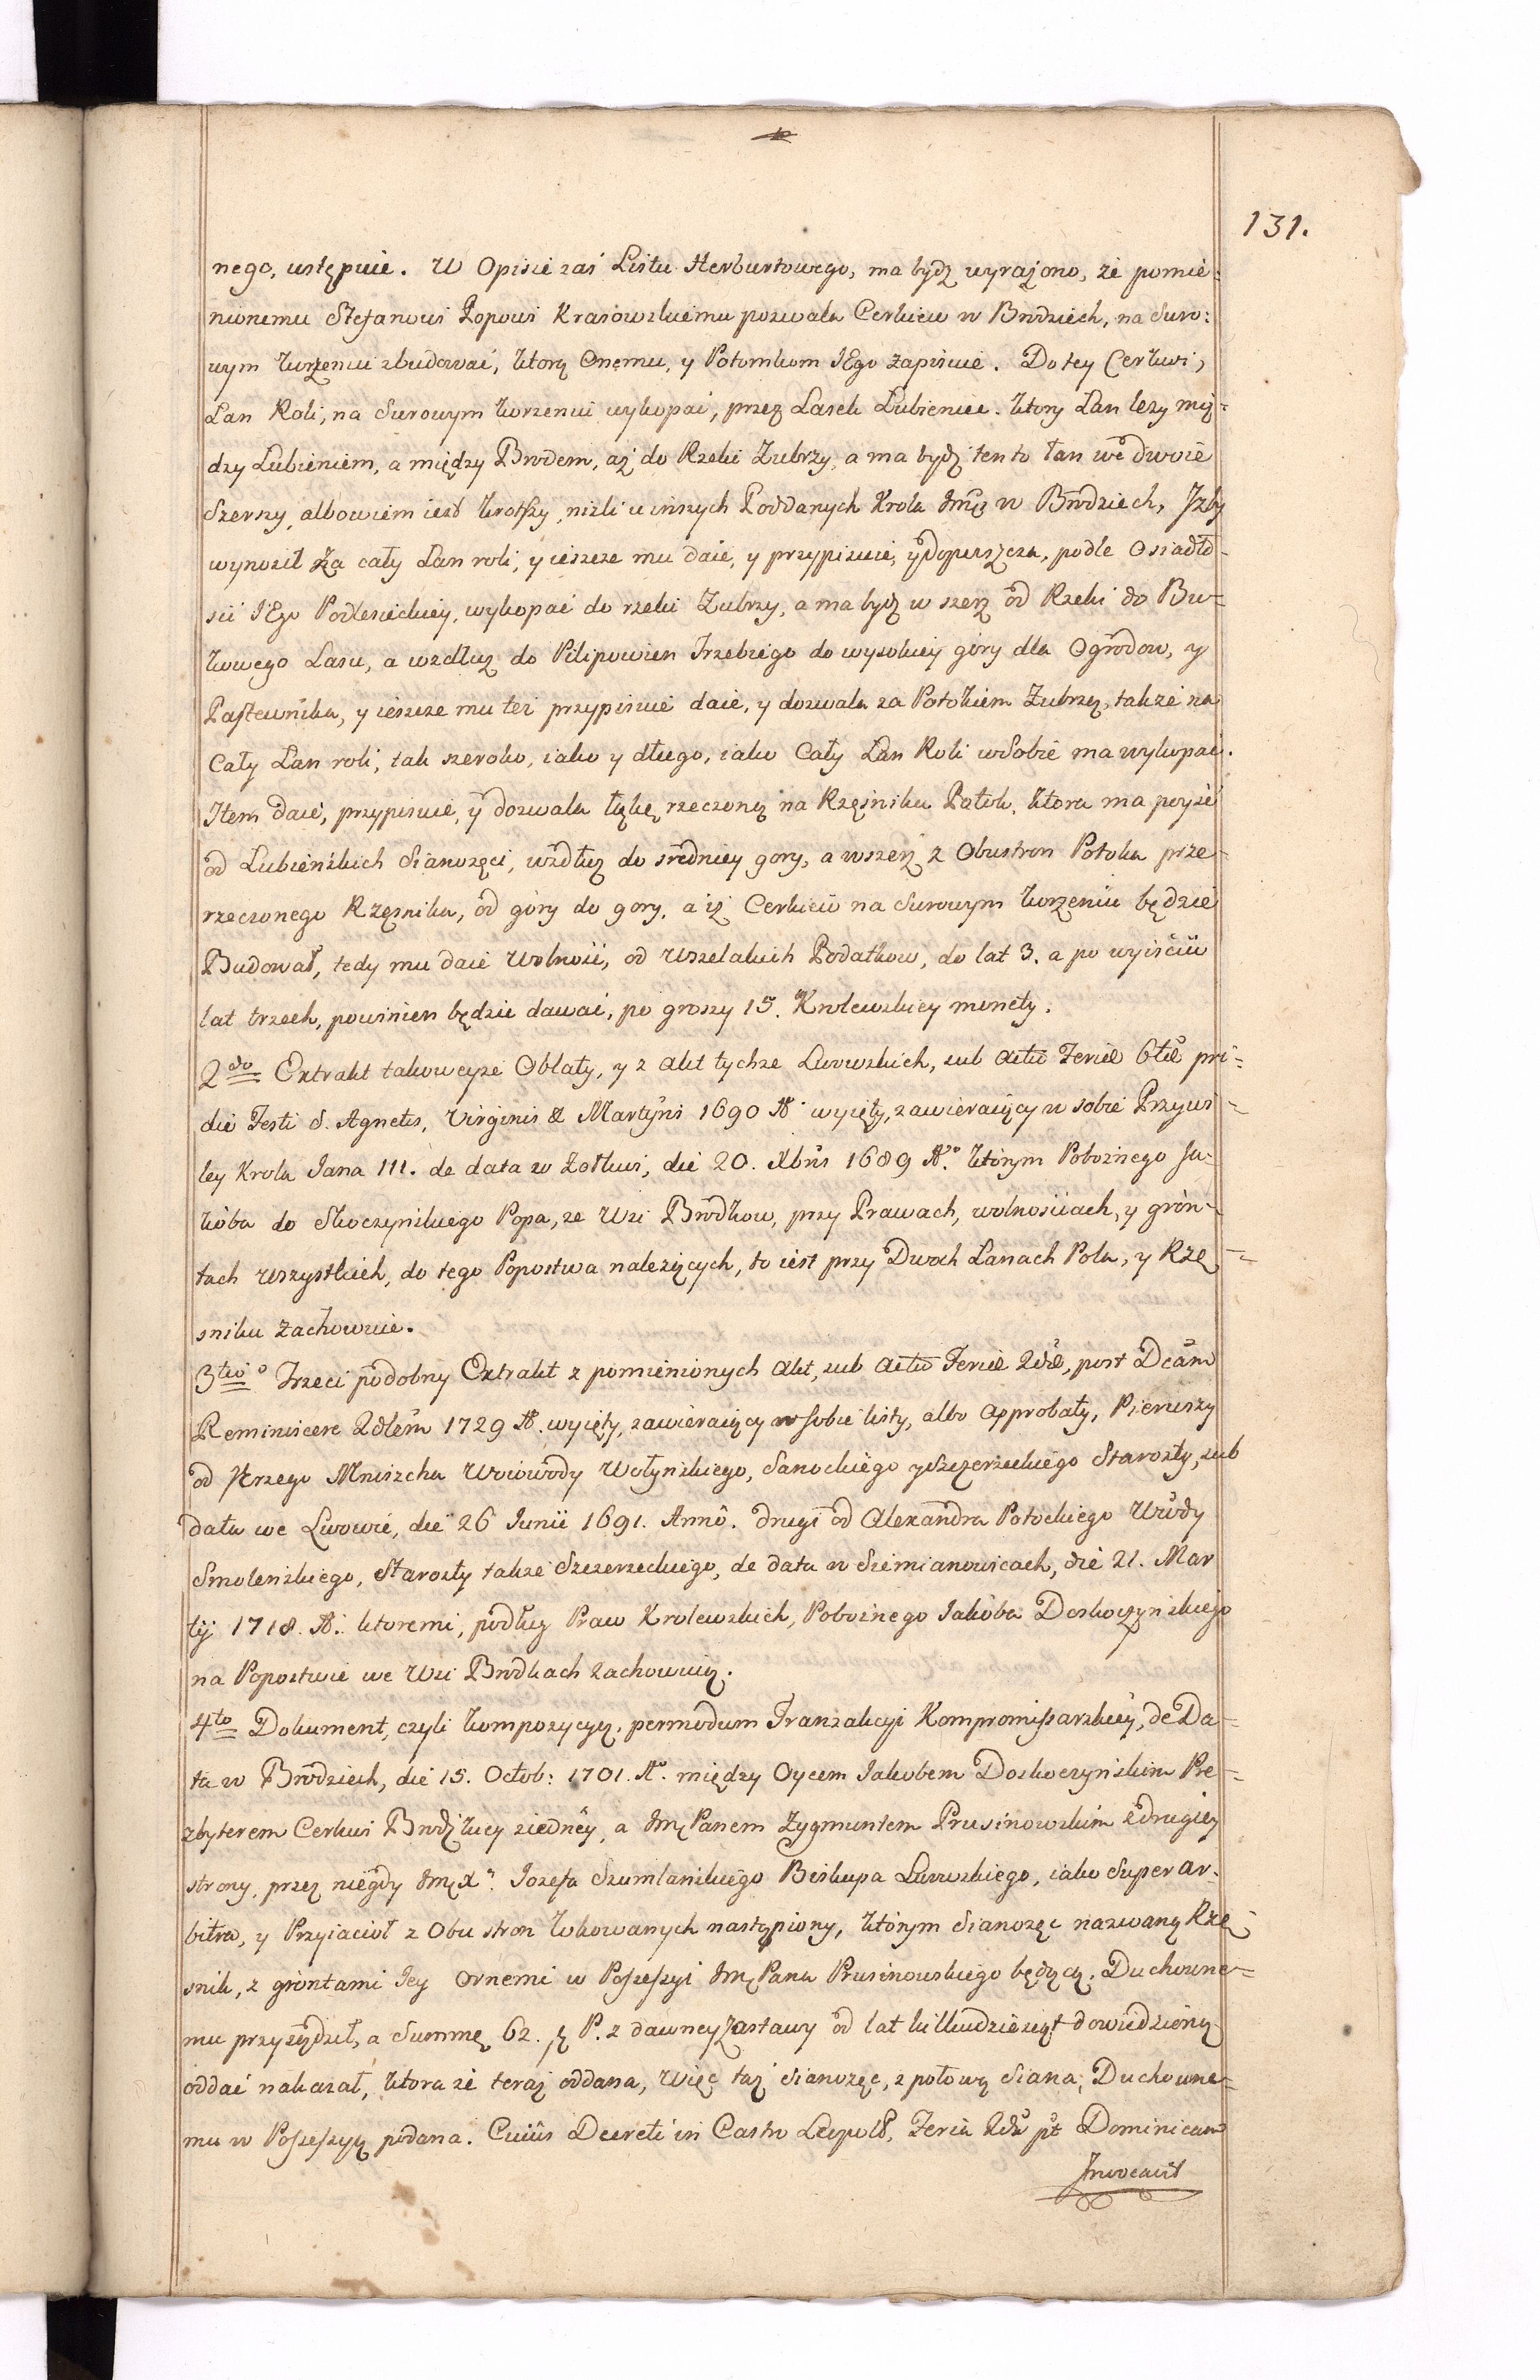 131.
nego, ustępuie. W Opisie zaś Listu Herburtowego, ma bydz wyrażono, że pomie-
nionemu Stefanowi Popowi Krasowskiemu pozwala Cerkiew w Brodziech, na Suro:
wym korzeniu zbudować, ktorą Onemu, y Potomkom JEgo zapisuie. Do tey Cerkwi,
Łan Roli, na Surowym korzeniu wykopać, przez Lasek Lubieniec. Ktory Łan leży mię-
dzy Lubieniem, a między Brodem, aż do Rzeki Zubrzy, a ma bydz ten to łan we dwoie
Szerszy, albowiem iest krotszy, niżli u innych Poddanych Krola Jmci w Brodziech, Jżby
wynosił za cały Łan roli, y ieszcze mu daie, y przypisuie, y dopuszcza, podle Osiadło-
sci JEgo Podlesieckiey, wykopać do rzeki Zubrzy, a ma bydz w szerz od Rzeki do Bu-
kowego Lasu, a wzdłuz do Pilipowien Trzebiego do wysokiey góry dla Ogrodow, y
Pastewnika, y ieszcze mu też przypisuie daie, y dozwala za Potokiem Zubrzą, także na
Cały Łan roli, tak szeroko, iako y długo, iako Cały Łan Roli w Sobie ma wykopać.
Jtem daie, przypisuie, y dozwala łąkę rzeczoną na Rzęśniku Potok, ktora ma poyść
od Lubieńskich Sianożęci, wzdłuż do średniey gory, a wszerz z Obustron Potoka prze-
rzeczonego Rzęsnika, od góry do gory, a iż Cerkiew na Surowym korzeniu będzie
Budował, tedy mu daie Wolność, od Wszelakich Podatkow, do lat 3. a po wyiściu
lat trzech, powinien będzie dawać, po groszy 15. Krolewskiey monety.
2do Extrakt takowcyże Oblaty, y z Akt tychże Lwowskich, sub Actu Feriæ 6tæ pri-
die Festi S. Agnetis, Virginis & Martyris 1690 Ao wyięty, zawieraiący w sobie Przywi-
ley Krola Jana III. de data w Zołkwi, die 20. Xbris 1689 Ao. którym Pobożnego Ja-
kóba do Skoczynskiego Popa, ze Wsi Brodkow, przy Prawach, wolnościach, y grón-
tach wszystkich, do tego Popostwa należących, to iest przy Dwoch Łanach Pola, y Rzę-
sniku zachowuie.
3tio Trzeci podobny Extrakt z pomienionych Akt, sub Actu Feriæ 2dæ, post Dcam
Reminiscere 2dlem 1729 Ao. wyięty, zawieraiący w sobie listy, albo Approbaty, Pierwszy
od Jerzego Mniszcha Woiewody Wołynskiego, Sanockiego y Szczerzeckiego Starosty, sub
data we Lwowie, die 26 Junii 1691. Anno. drugi od Alexandra Potockiego Wwody
Smoleńskiego, Starosty także Szczerzeckiego, de data w Siemianowicach, die 21. Mar
tij 1718. Ao. ktoremi, podług Praw Krolewskich, Pobożnego Jakóba Doskoczyńskiego
na Popostwie we Wsi Brodkach zachowuią.
4to Dokument, czyli kompozycyą, permodum Tranzakcyi Kompromissarskiey, de Da-
ta w Brodziech, die 15. Octob: 1701. Ao. między Oycem Jakobem Doskoczyńskim Pre-
zbyterem Cerkwi Brodzkiey ziedney, a Jmć Panem Zygmuntem Prusinowskim zdrugiey
strony, przez niegdy Jmć Xa. Jozefa Szumlańskiego Biskupa Lwowskiego, iako Super ar-
bitra, y Przyiacioł z Obu stron lokowanych nastąpiony, którym Sianożęć nazwaną Rzę-
snik, z grontami Jey Ornemi w Possessyi Jmć Pana Prusinowskiego będącą, Duchowne-
mu przysądził, a Summę 62. P. z dawney zastawy od lat kilkudziesiąt dowiedzioną
oddać nakazał, ktora że teraz oddana, więc taż Sianożęć, z połową Siana, Duchowne-
mu w Possessyą podana. Cuius Decreti in Castro Leopold, Feria 2da pt Dominicam
Jnvocavit